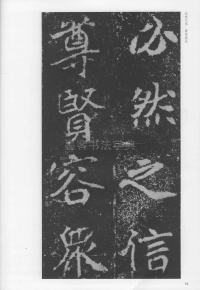 必然之信
尊賢容眾